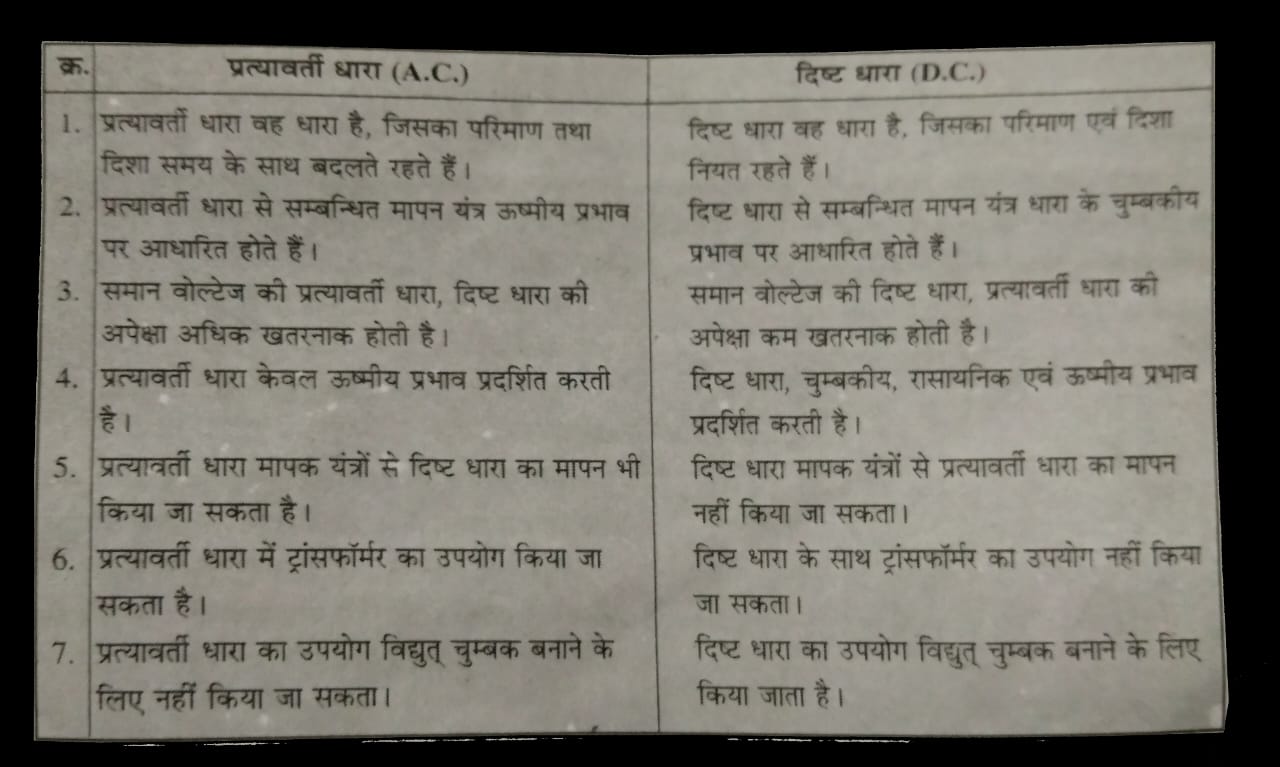 क्र. प्रत्यावर्ती धारा (A.C.) दिष्ट धारा (D.C.)
1. प्रत्यावर्ती धारा वह धारा है, जिसका परिमाण तथा दिष्ट धारा वह धारा है, जिसका परिमाण एवं दिशा
दिशा समय के साथ बदलते रहते हैं। नियत रहते हैं।
2. प्रत्यावर्ती धारा से सम्बन्धित मापन यंत्र ऊष्मीय प्रभाव दिष्ट धारा से सम्बन्धित मापन यंत्र धारा के चुम्बकीय
पर आधारित होते हैं। प्रभाव पर आधारित होते हैं।
3. समान वोल्टेज की प्रत्यावर्ती धारा, दिष्ट धारा की समान वोल्टेज की दिष्ट धारा, प्रत्यावर्ती धारा की
अपेक्षा अधिक खतरनाक होती है। अपेक्षा कम खतरनाक होती है।
4. प्रत्यावर्ती धारा केवल ऊष्मीय प्रभाव प्रदर्शित करती दिष्ट धारा, चुम्बकीय, रासायनिक एवं ऊष्मीय प्रभाव
है। प्रदर्शित करती है।
5. प्रत्यावर्ती धारा मापक यंत्रों से दिष्ट धारा का मापन भी दिष्ट धारा मापक यंत्रों से प्रत्यावर्ती धारा का मापन
किया जा सकता है। नहीं किया जा सकता।
6. प्रत्यावर्ती धारा में ट्रांसफॉर्मर का उपयोग किया जा दिष्ट धारा के साथ ट्रांसफॉर्मर का उपयोग नहीं किया
सकता है। जा सकता।
7. प्रत्यावर्ती धारा का उपयोग विद्युत् चुम्बक बनाने के दिष्ट धारा का उपयोग विद्युत् चुम्बक बनाने के लिए
लिए नहीं किया जा सकता। किया जाता है।